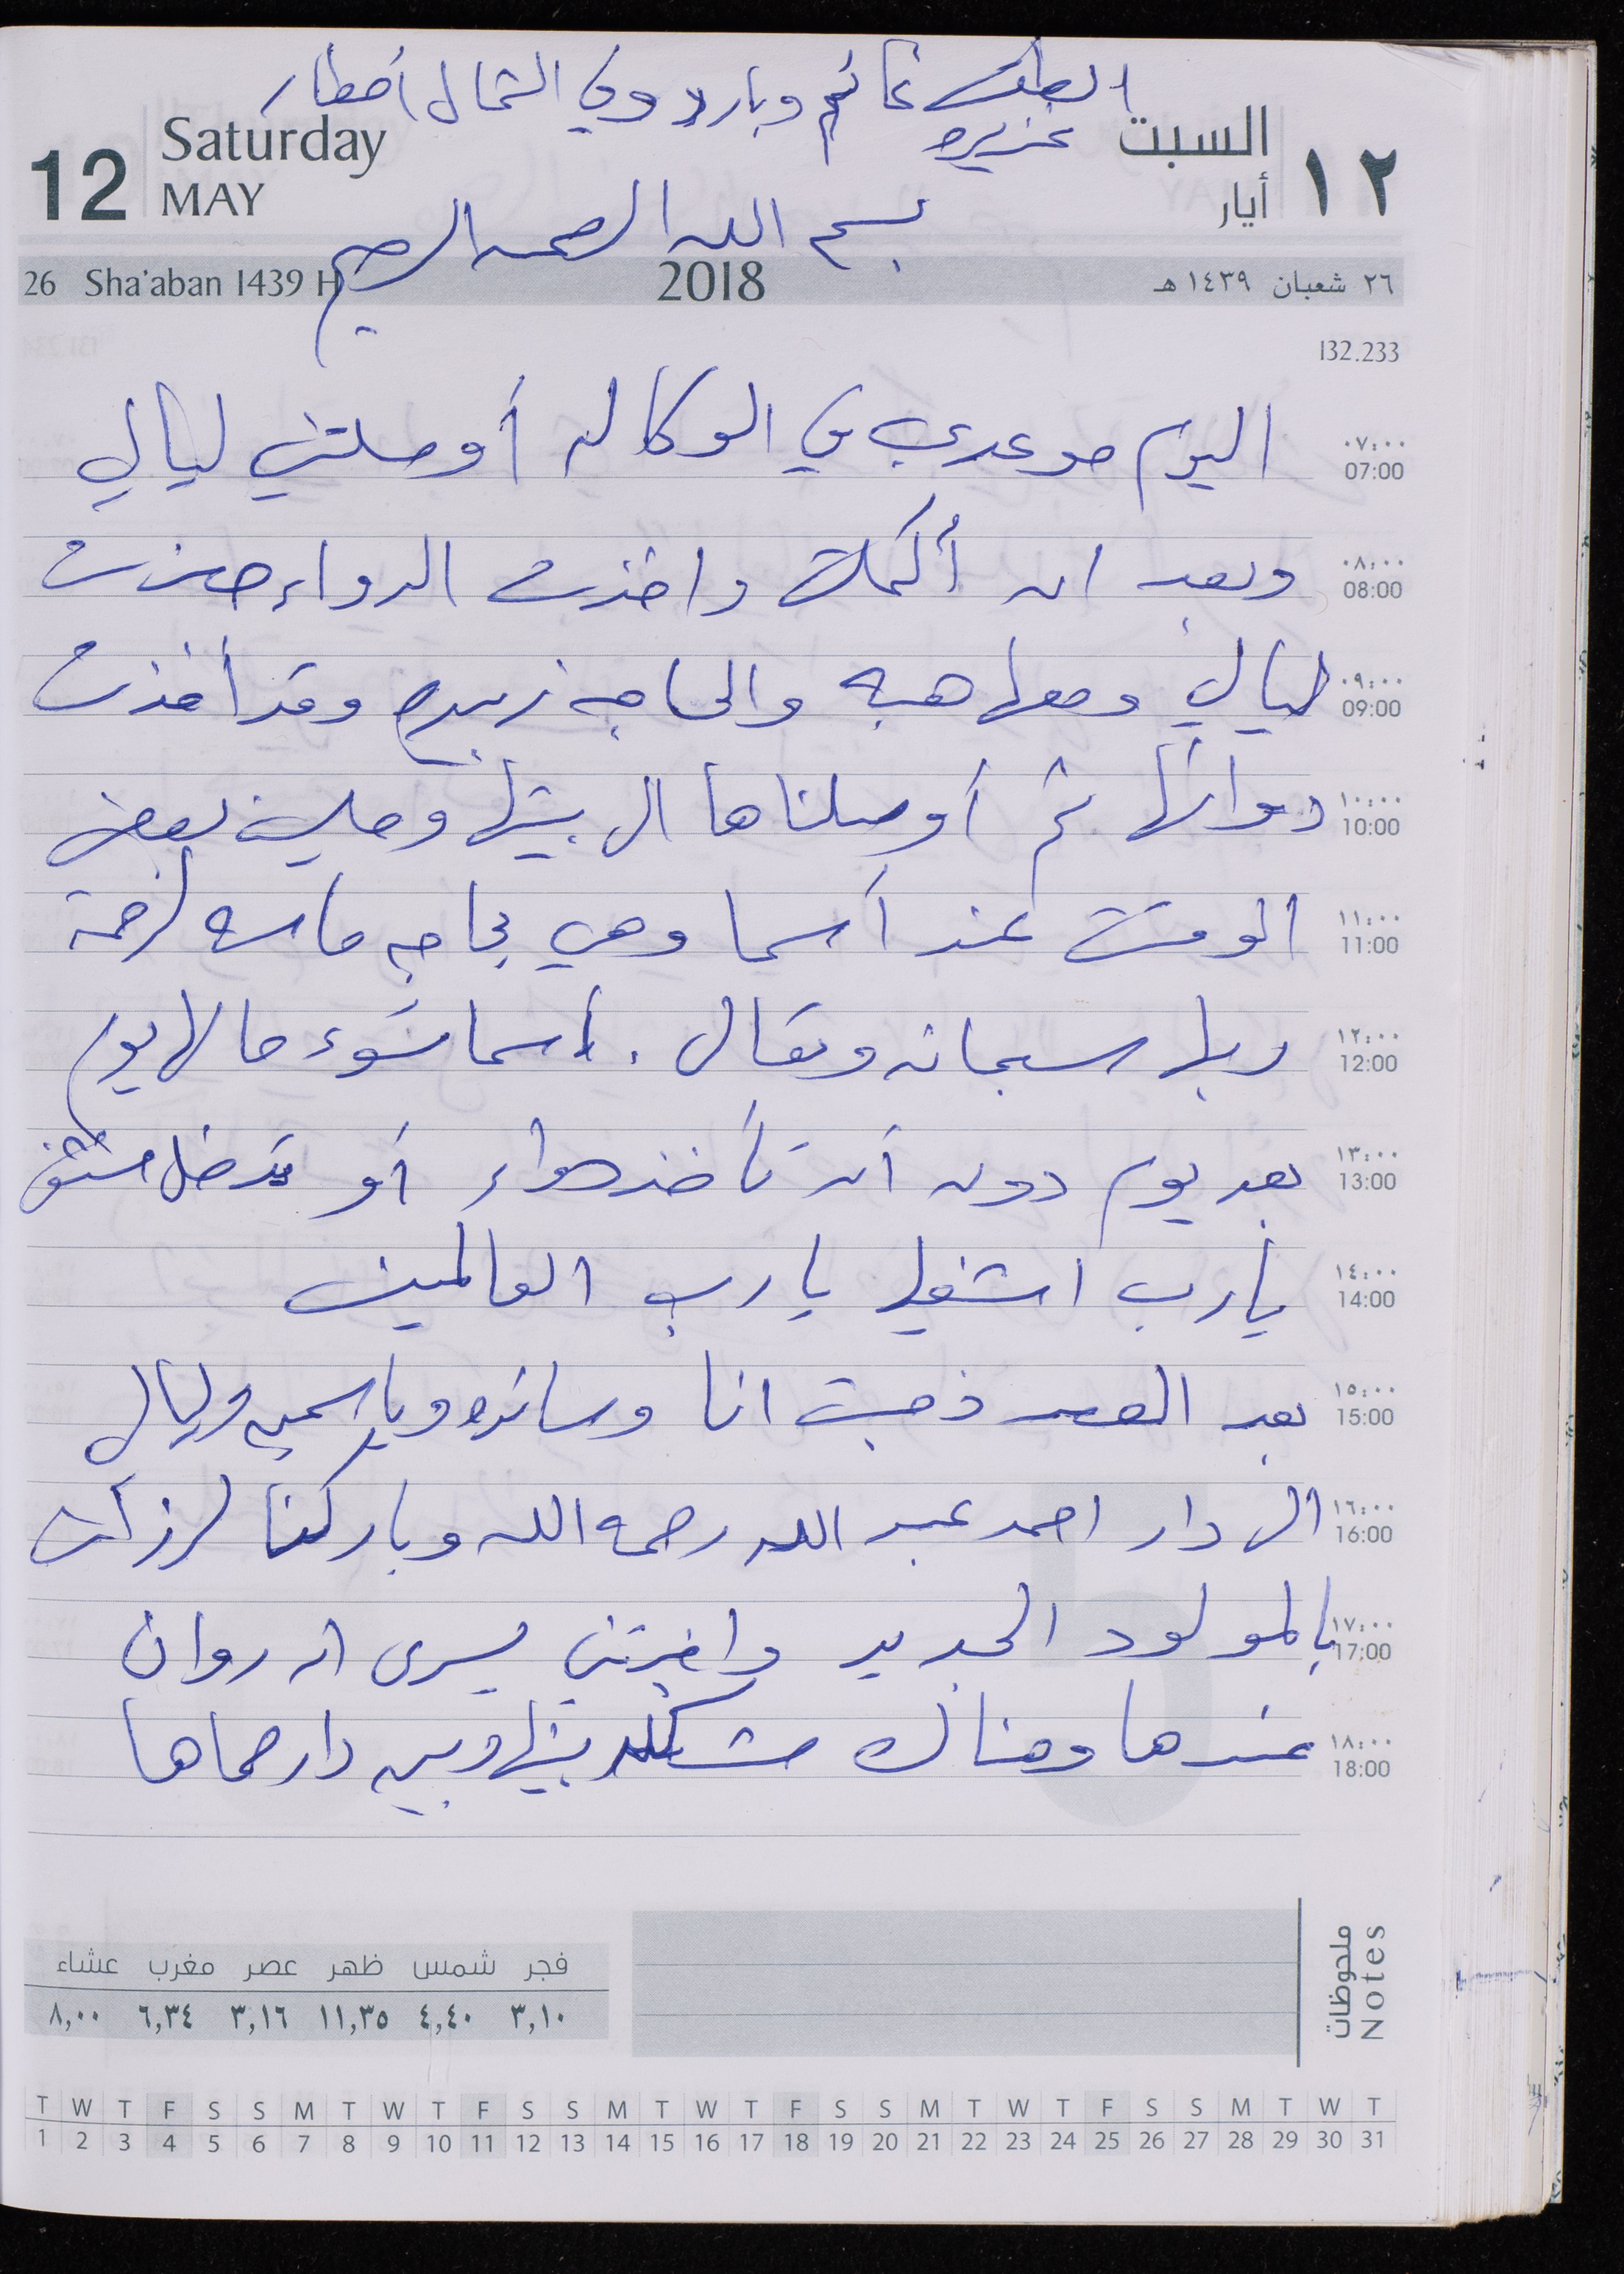 الطقس غائم وبارد وفي الشمال أمطار
غزيره
السبت ١٢
أيار
12 Saturday
MAY
بسم الله الرحمن الرحيم
26 Sha'aban 1439 H 2018 ٢٦ شعبان ١٤٣٩ هـ
132.233
٠٧:٠٠ 07:00 اليوم موعدي في الوكاله أوصلتني ليالي
٠٨:٠٠ 08:00 وبعد ان أكملت واخذت الدواء حضرت
٠٩:٠٠ 09:00 ليالي ومعها هبه والحاجه زبيده وقد أخذت
١٠:٠٠ 10:00 دوائها ثم أوصلناها الى بيتها وصليت بعض
١١:٠٠ 11:00 الوقت عند أسما وهي بحاجه ماسه لرحمة
١٢:٠٠ 12:00 ربها سبحانه وتعالى . اسما تسوء حالها يوم
١٣:٠٠ 13:00 بعد يوم دون أن تأخذ دواء أو تدخل مستشفى
١٤:٠٠ 14:00 يارب اشفها يا رب العالمين
١٥:٠٠ 15:00 بعد العصر ذهبت انا وسائده وياسمين وليالي
١٦:٠٠ 16:00 الى دار احمد عبد الله رحمه الله وباركنا
١٧:٠٠ 17:00 بالمولود الجديد واخبرتني يسرى ان روان
١٨:٠٠ 18:00 عندها وهناك مشكله بينها وبين دار حماها
ملحوظات
Notes
فجر شمس ظهر عصر مغرب عشاء
٣,١٠ ٤,٤٠ ١١,٣٥ ٣,١٦ ٦,٣٤ ٨,٠٠
T W T F S S M T W T F S S M T W T F S S M T W T F S S M T W T
1 2 3 4 5 6 7 8 9 10 11 12 13 14 15 16 17 18 19 20 21 22 23 24 25 26 27 28 29 30 31